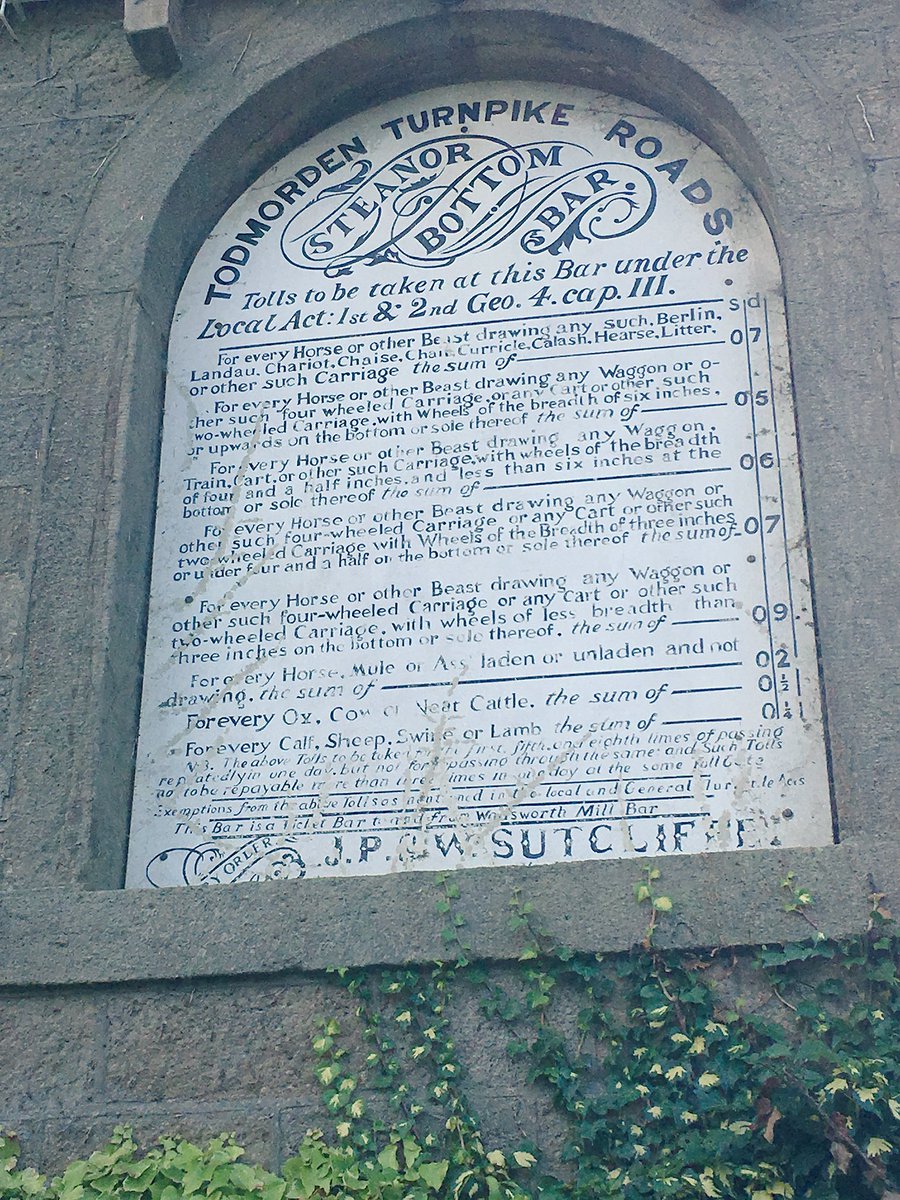 TODMORDEN TURNPIKE ROADS.
STEANOR
BOTTOM
BAR.
Tolls to be taken at this Bar under the
Local Act: 1st & 2nd Geo. 4. cap. III.
s d
For every Horse or other Beast drawing any such, Berlin,
Landau, Chariot, Chaise, Chair, Curricle, Calash, Hearse, Litter,
or other such Carriage the sum of 0 7
For every Horse or other Beast drawing any Waggon or o-
ther such four wheeled Carriage, or any Cart or other such
two-wheeled Carriage, with wheels of the breadth of six inches,
or upwards on the bottom or sole thereof the sum of 0 5
For every Horse or other Beast drawing any Waggon,
Train, Cart, or other such Carriage, with wheels of the breadth
of four and a half inches, and less than six inches at the
bottom or sole thereof the sum of 0 6
For every Horse or other Beast drawing any Waggon or
other such four-wheeled Carriage or any Cart or other such
two-wheeled Carriage with Wheels of the Breadth of three inches
or under four and a half on the bottom or sole thereof the sum of 0 7
For every Horse or other Beast drawing any Waggon or
other such four-wheeled Carriage or any Cart or other such
two-wheeled Carriage, with wheels of less breadth than
three inches on the bottom or sole thereof, the sum of 0 9
For every Horse, Mule or Ass laden or unladen and not
drawing, the sum of 0 2
For every Ox, Cow or Neat Cattle, the sum of 0 ½
For every Calf, Sheep, Swine or Lamb the sum of 0 ¼
N.B. The above Tolls to be taken first, fifth, and eighth times of passing
repeatedly in one day, but not for passing through the same: and Such Tolls
not to be repayable more than three times in one day at the same Toll Gate
Exemptions from the above Tolls as mentioned in the local and General Turnpike Acts
This Bar is a Ticket Bar to and from Wadsworth Mill Bar
BY ORDER
J.P. & W. SUTCLIFFE